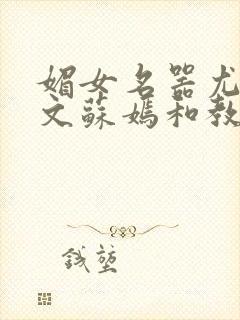 媚女名器尤
文蘇媽和教
錢堃